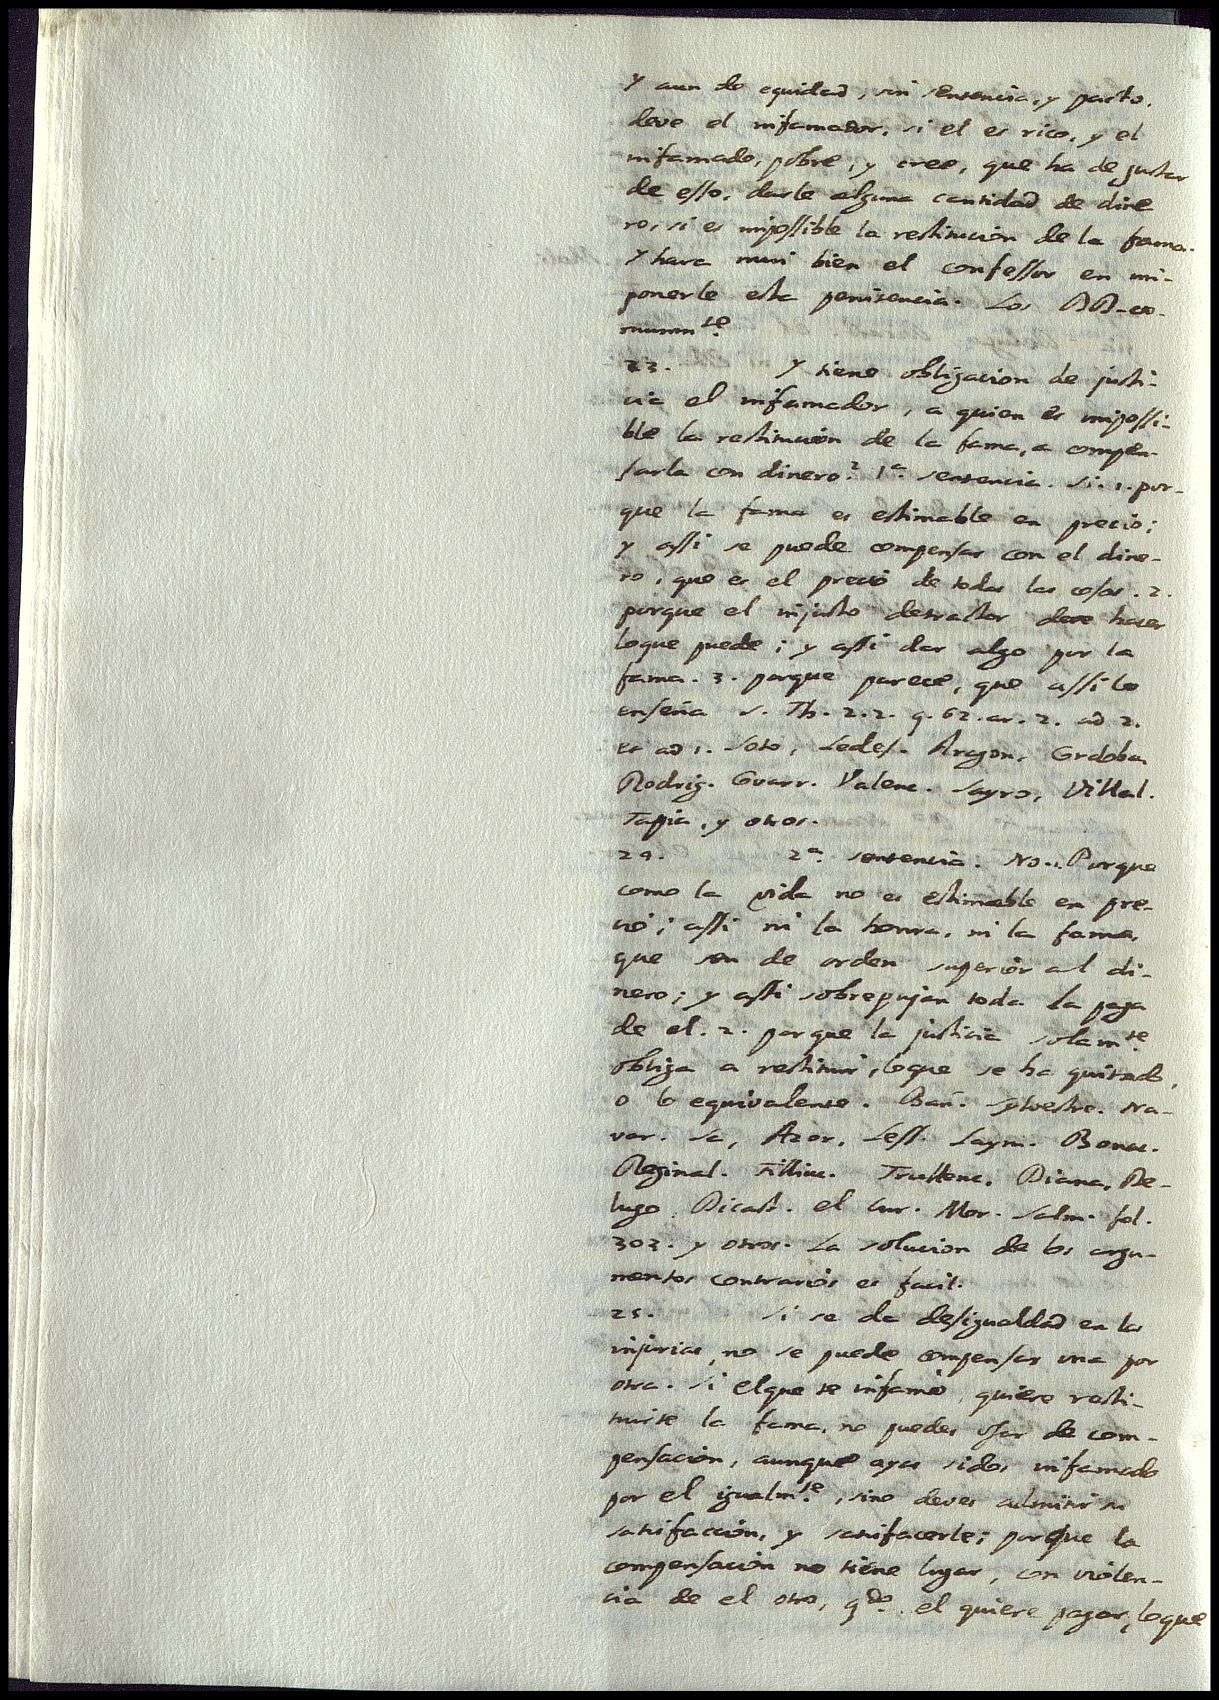 y aun de equidad, sin sentencia, y pacto,
deve el infamador, si el es rico, y el
infamado, pobre, y cree, que ha de gustar
de esso, darle alguna cantidad de dine
ro, si es impossible la restitucion de la fama.
y hara mui bien el confessor en im-
ponerle esta penitencia. Los DD. co-
munmte
23. Y tiene obligacion de justi-
cia el infamador, a quien es impossi-
ble la restitucion de la fama, a compen-
sarla con dinero? 1a. sentencia. Si. 1. por-
que la fama es estimable en precio;
y assi se puede compensar con el dine-
ro, que es el precio de todas las cosas. 2.
porque el injusto detractor deve hacer
loque puede; y assi dar algo por la
fama. 3. porque parece, que assi lo
enseña S. Th. 2.2. q. 62. ar. 2. ad 2.
et ad 1. Soto, Ledes. Aragon, Cordoba,
Rodrig. Guarr. Valenc. Sayro, Villal.
Tapia, y otros.
24. 2a. sentencia. No. 1. Porque
como la vida no es estimable en pre-
cio; assi ni la honra, ni la fama,
que son de orden superior al di-
nero; y assi sobrepujan toda la paga
de el. 2. porque la justicia solamte.
obliga a restituir, loque se ha quitado,
o lo equivalente. Bañ. Sylvestre. Na-
var. Sa, Azor, Less. Laym. Bonac.
Reginal. Filliuc. Trullenc. Diana, De-
lugo, Dicast. el Cur. Mor. Salm. fol.
303. y otros. La solucion de los argu-
mentos contrarios es facil.
25. Si se da desigualdad en las
injurias, no se puede compensar una por
otra. Si elque te infamò, quiere resti-
tuirte la fama, no puedes usar de com-
pensacion, aunque ayas sido, infamado
por el igualmte., sino deves admitir su
satisfaccion, y satisfacerle; porque la
compensacion no tiene lugar, con violen-
cia de el otro, qdo. el quiere pagar, loque